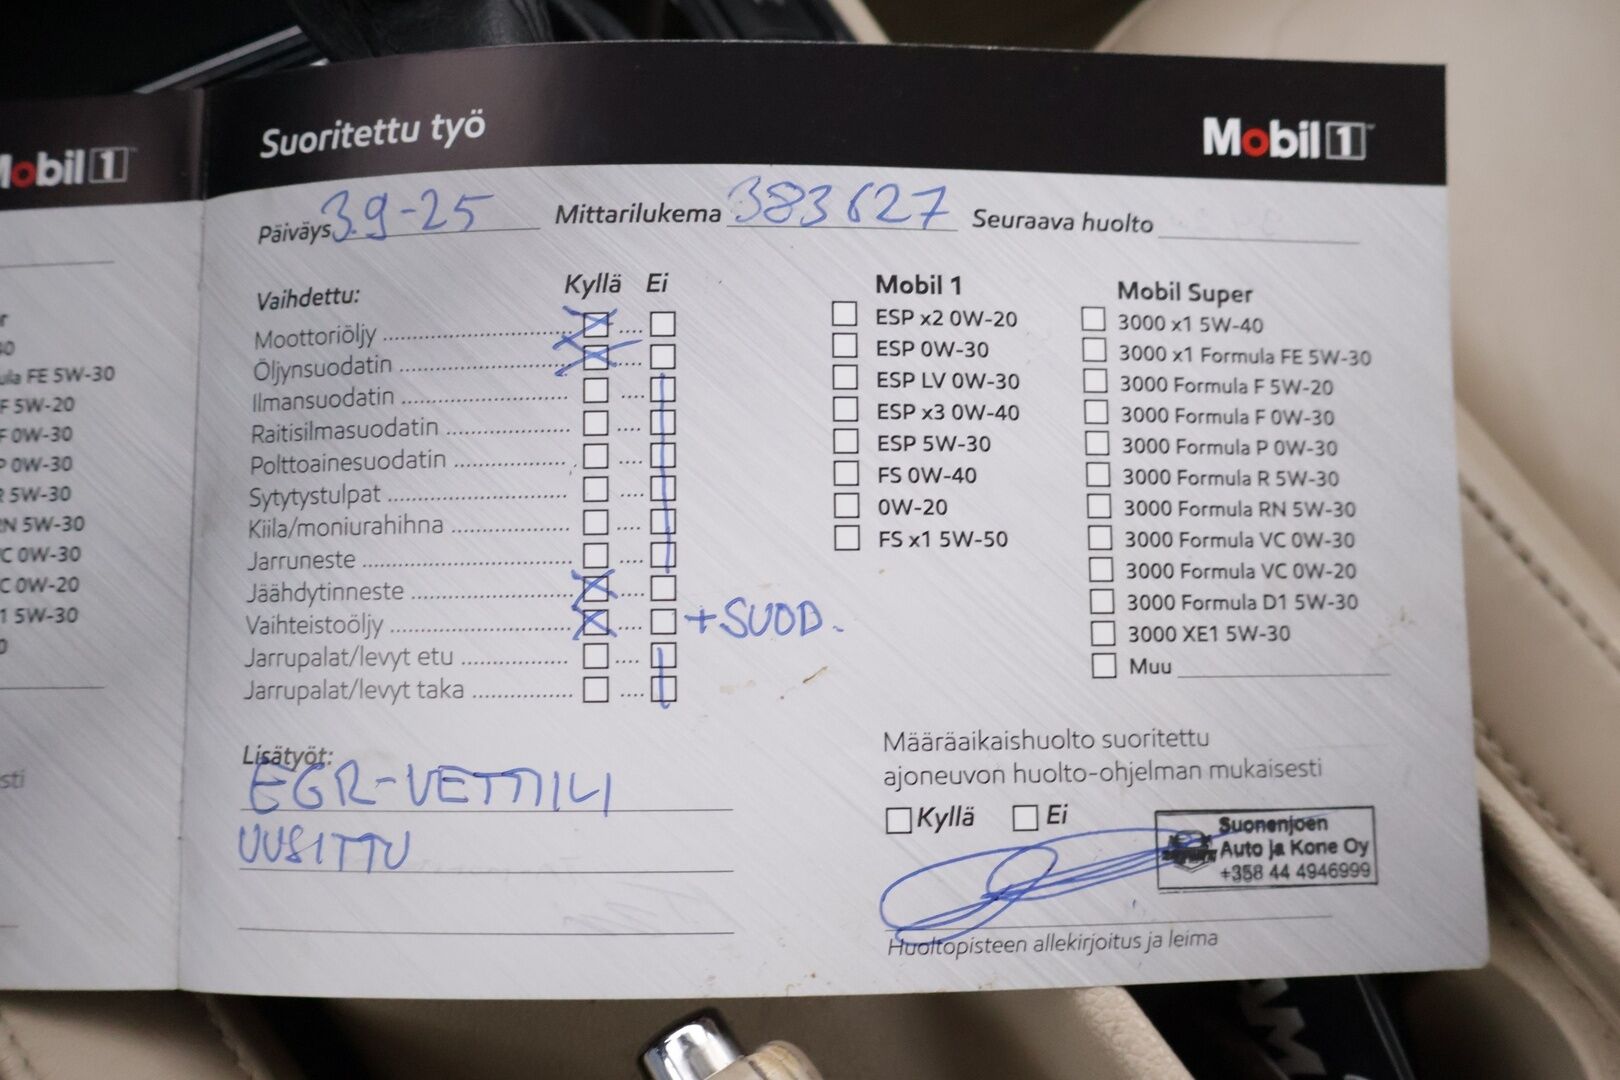 Mobil 1
FE 5W-30
F 5W-20
0W-30
0W-30
5W-30
5W-30
0W-30
0W-20
5W-30
Suoritettu työ
Mobil 1
Päiväys 3.9-25 Mittarilukema 383627 Seuraava huolto
Vaihdettu: Kyllä Ei
Moottoriöljy
Öljynsuodatin
Ilmansuodatin
Raitisilmasuodatin
Polttoainesuodatin
Sytytystulpat
Kiila/moniurahihna
Jarruneste
Jäähdytinneste
Vaihteistoöljy +SUOD.
Jarrupalat/levyt etu
Jarrupalat/levyt taka
Lisätyöt:
EGR-VETTIILI
UUSITTU
Mobil 1
ESP x2 0W-20
ESP 0W-30
ESP LV 0W-30
ESP x3 0W-40
ESP 5W-30
FS 0W-40
0W-20
FS x1 5W-50
Mobil Super
3000 x1 5W-40
3000 x1 Formula FE 5W-30
3000 Formula F 5W-20
3000 Formula F 0W-30
3000 Formula P 0W-30
3000 Formula R 5W-30
3000 Formula RN 5W-30
3000 Formula VC 0W-30
3000 Formula VC 0W-20
3000 Formula D1 5W-30
3000 XE1 5W-30
Muu
Määräaikaishuolto suoritettu
ajoneuvon huolto-ohjelman mukaisesti
Kyllä Ei
Suonenjoen
Auto ja Kone Oy
+358 44 4946999
Huoltopisteen allekirjoitus ja leima